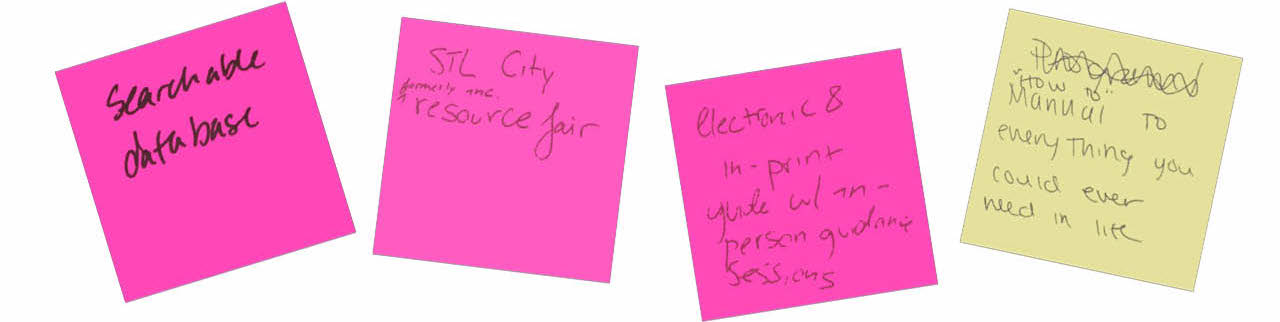 Searchable
database
STL City
^ formerly inc.
resource fair
electronic &
in-print
guide w/ in-
person guidance
sessions
"HOW TO"
Manual TO
everything you
could ever
need in life